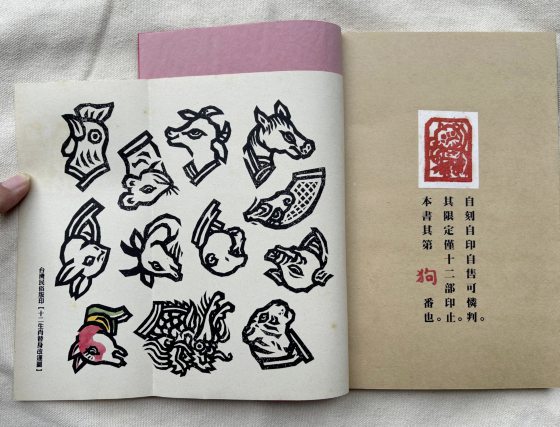 自刻自印自售可憐判。
其限定僅十二部印止。
本書其第 狗 番也。
台湾民俗版印【十二生肖替身改運圖】